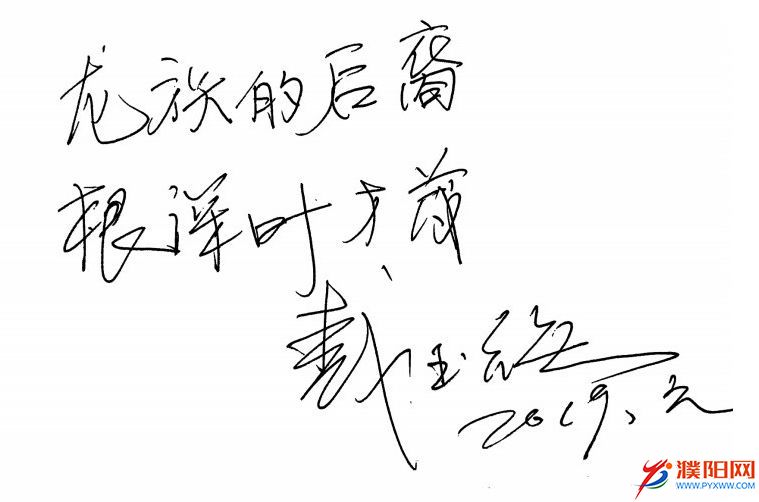 龙族的后裔
根深叶才茂
戴玉
2019、元
濮阳网
WWW.PYXWW.COM